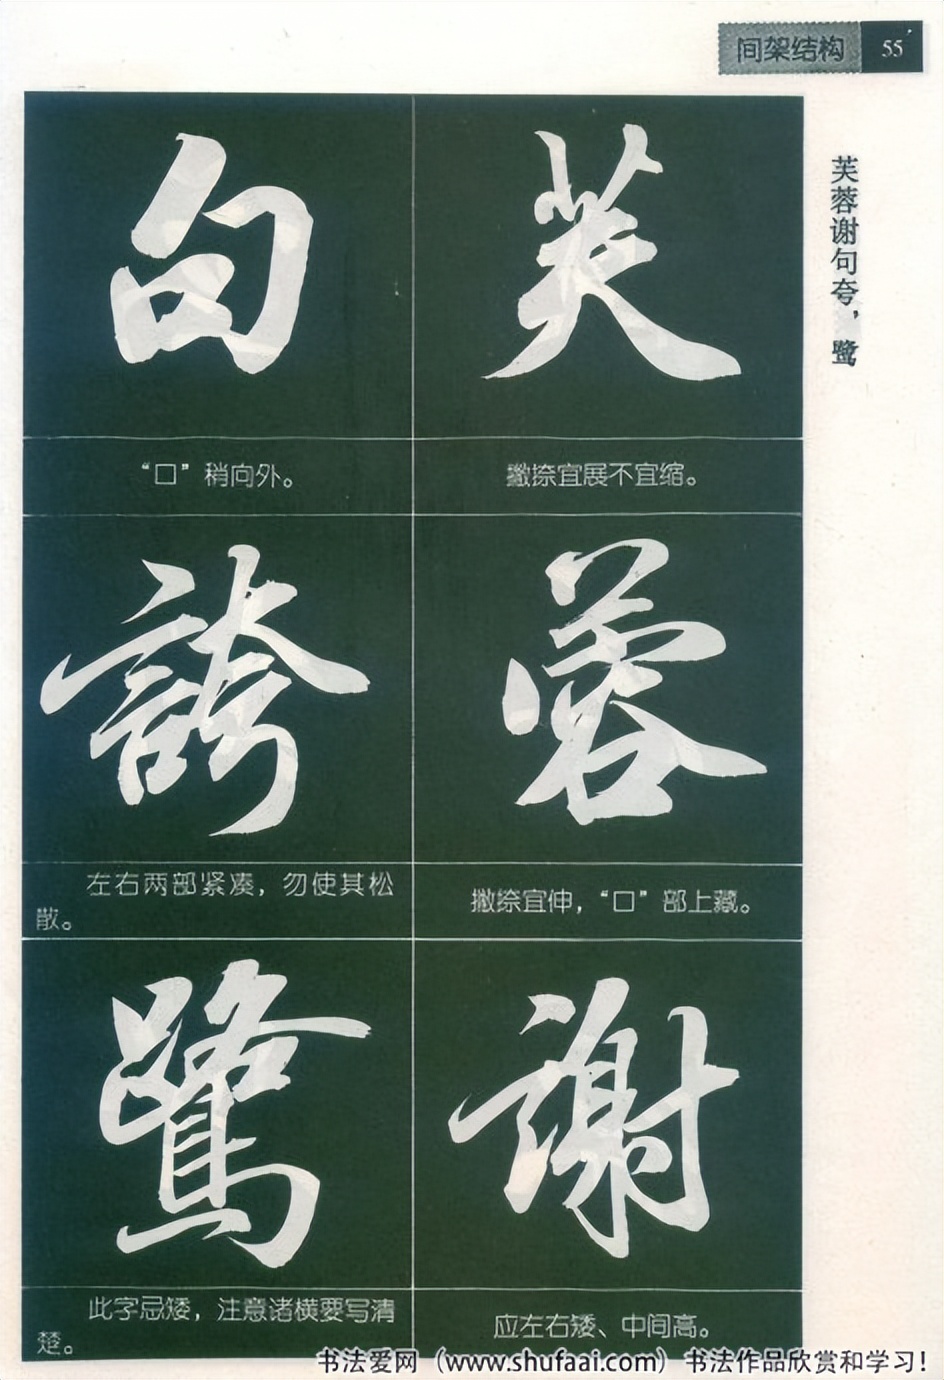 间架结构 55
芙蓉谢句夸，鹭
芙
撇捺宜展不宜缩。
蓉
撇捺宜伸，“口”部上藏。
謝
应左右矮、中间高。
句
“口”稍向外。
誇
左右两部紧凑，勿使其松
散。
鷺
此字忌矮，注意诸横要写清
楚。
书法爱网（www.shufaai.com）书法作品欣赏和学习！